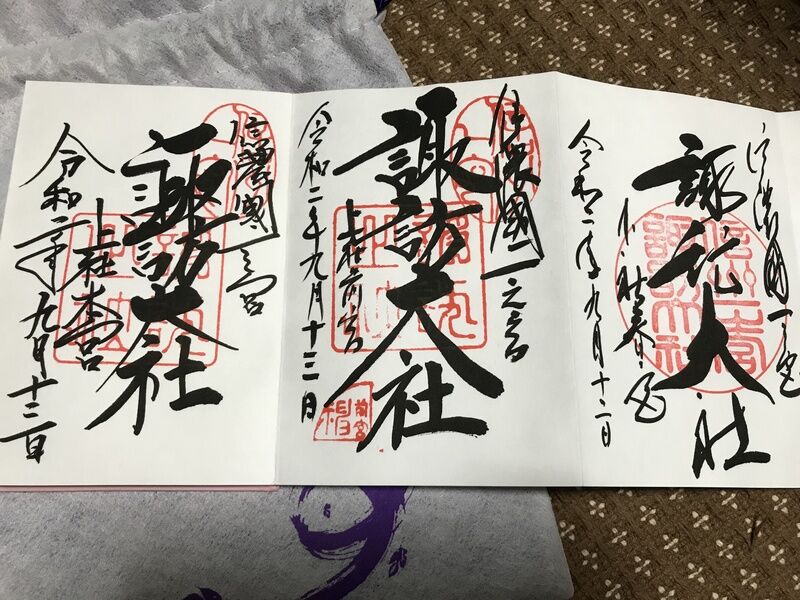 信濃國一之宮
諏訪大社
下社春宮
令和二年九月十二日
信濃國一之宮
諏訪大社
上社前宮
令和二年九月十三日
前宮
信濃國一之宮
諏訪大社
上社本宮
令和二年九月十三日